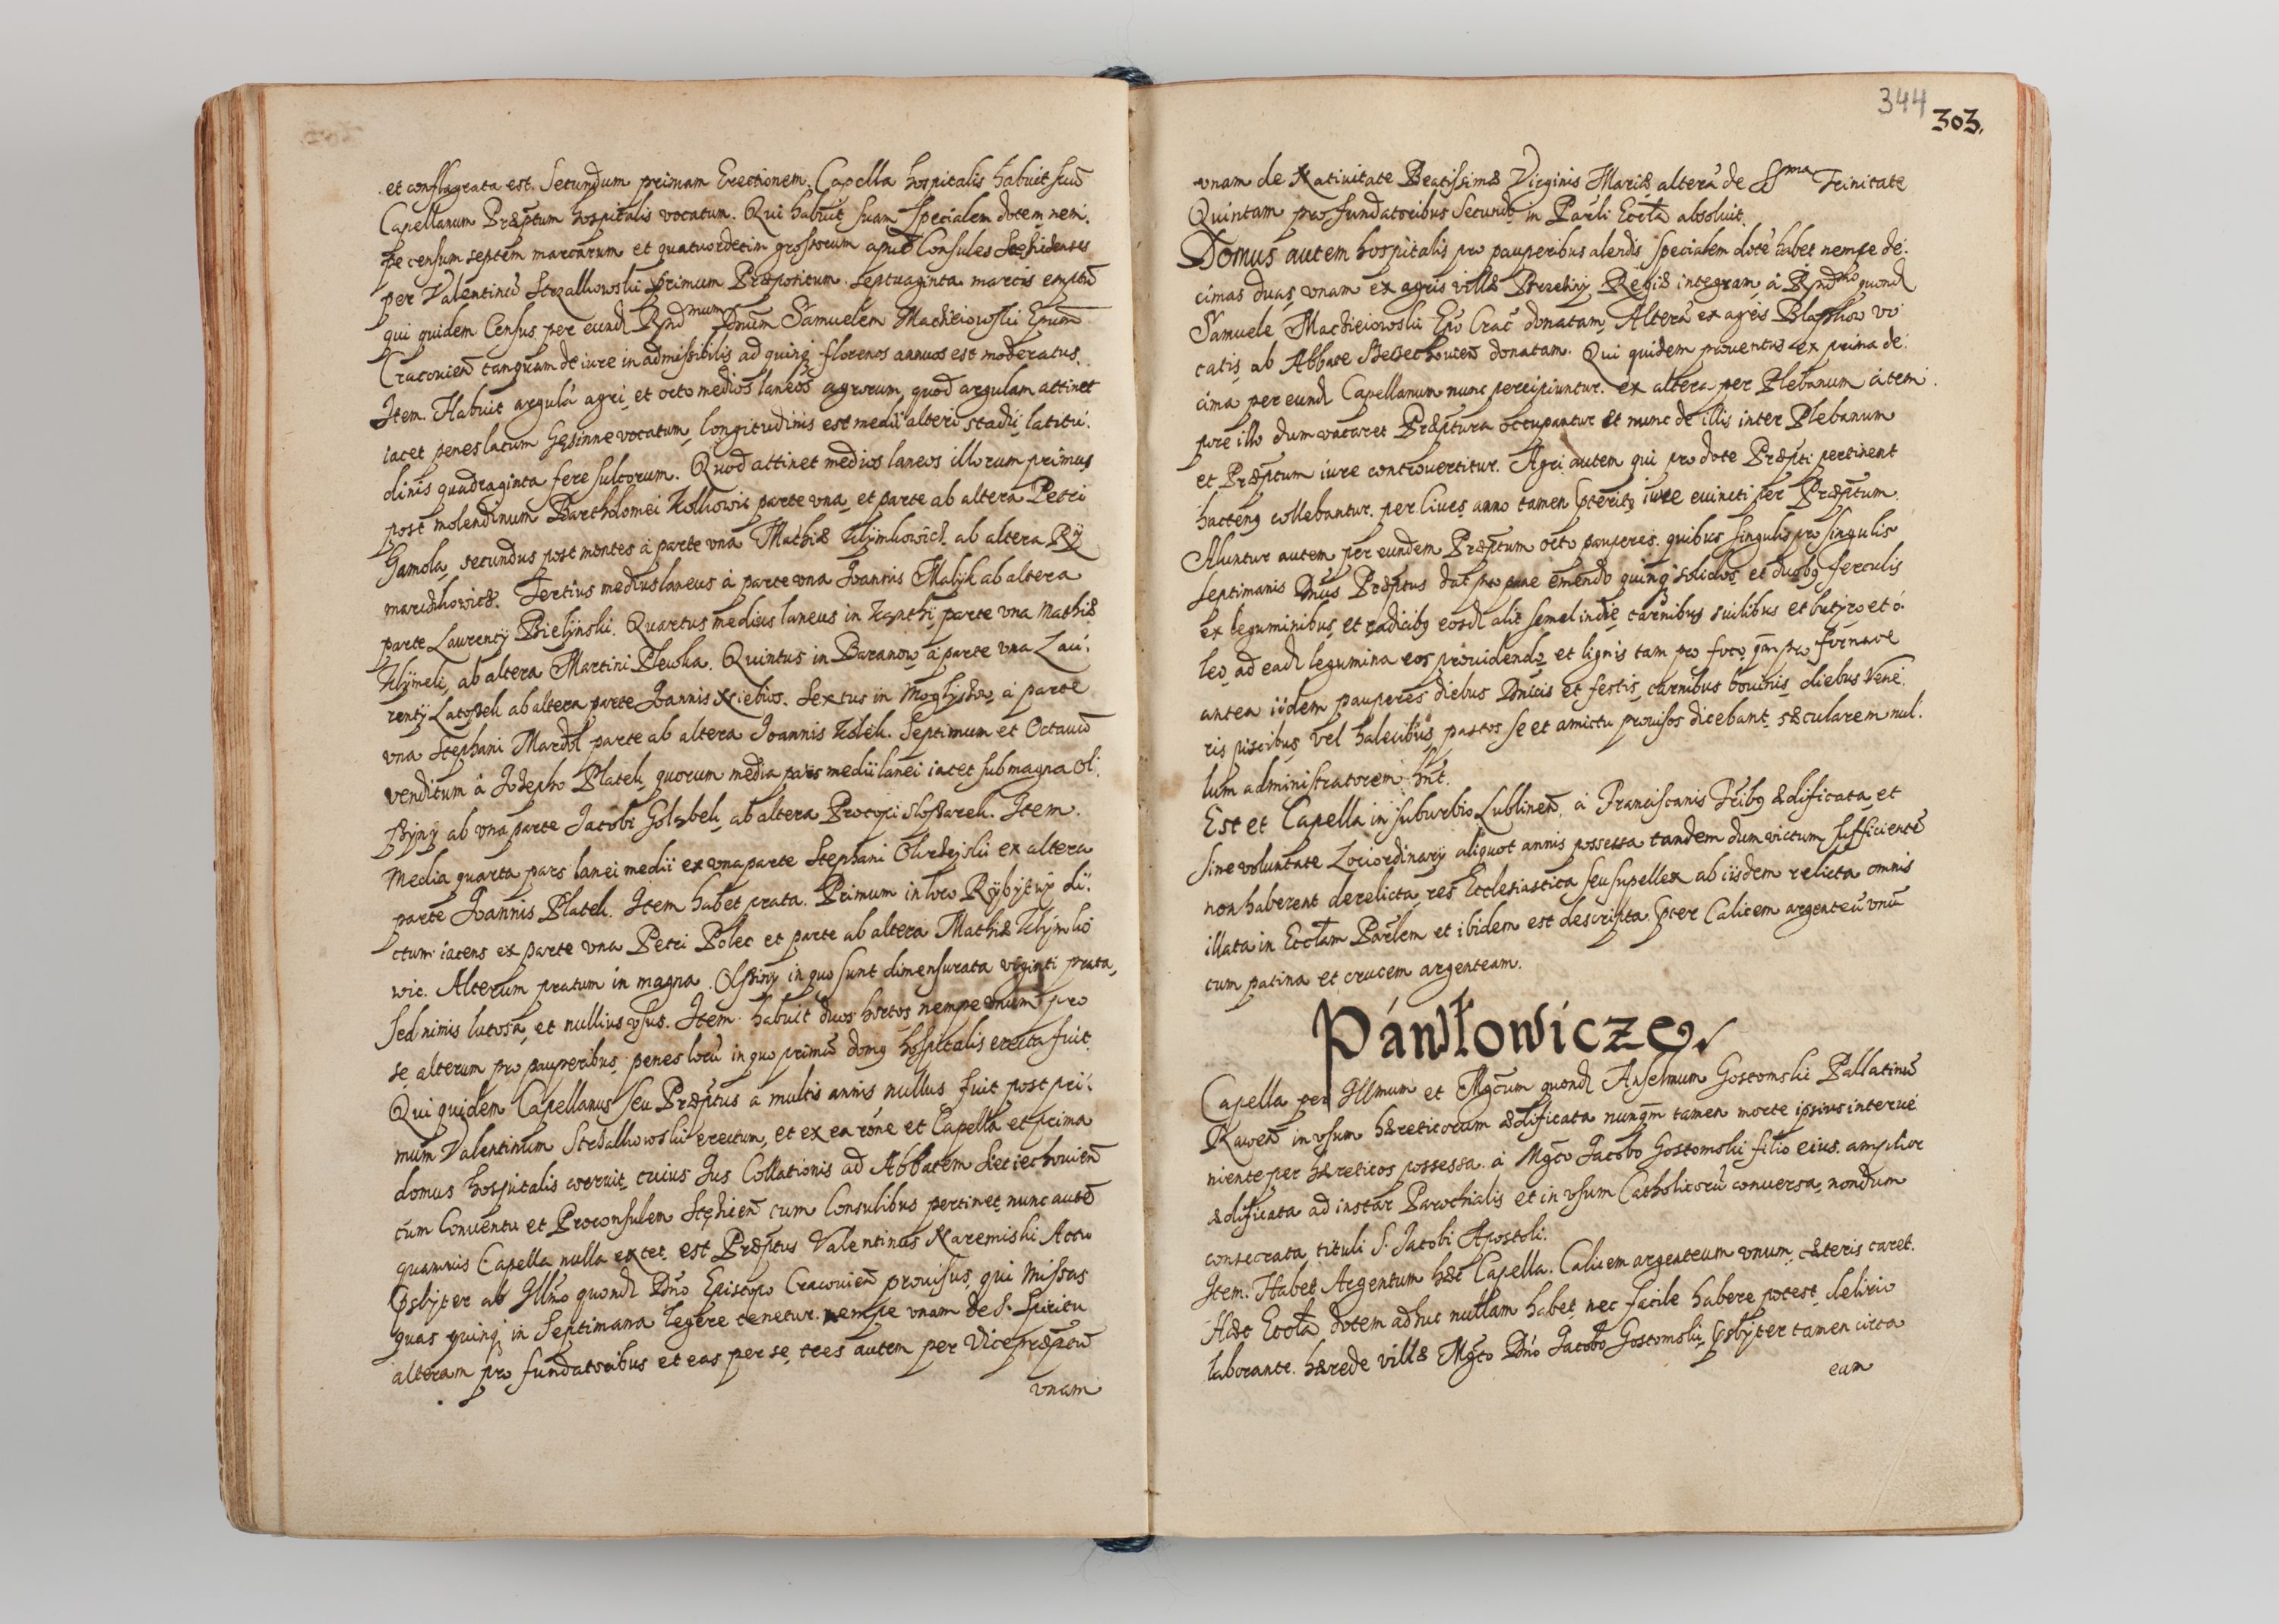 et conflagrata est. Secundum primam Erectionem. Capella hospitalis habuit suū
Capellanum Præptum hospitalis vocatum. Qui habuit suam specialem dotem nem:
pe censum septem marcarum et quatuordecim grossorum apud Consules
per Valentinū Strzalkowski primum Præpositum. Septuaginta marcis emptū
qui quidem Census per eund Rndmum Dnum Samuelem Maciieiowski Epum
Cracovien̄ tanquam de iure inadmissibilis ad quinq florenos annuos est moderatus.
Item. Habuit argulā agri et octo medios laneos agrorum, quod argulam attinet
iacet penes latum vocatum, longitudinis est medii alteri stadii, latitu:
dinis quadraginta fere sulcorum. Quod attinet medios laneos illorum primus
post molendinum Bartholomei Kolkowic parte vna, et parte ab altera Petri
Gamola, secundus post montes à parte vna Mathiæ Klÿmkowicz, ab altera Rÿ
Tertius medius laneus à parte vna Joannis Malÿk ab altera
parte Laurentÿ Bielÿnski. Quartus medius laneus in parte vna Mathiæ
Klÿmeli, ab altera Martini Plewka. Quintus in Baranow, à parte vna Lau:
rentÿ ab altera parte Joannis Niebios. Sextus in à parte
vna Stephani parte ab altera Joannis Kolek. Septimum et Octauū
venditum à Josepho Platek, quorum media pars medii lanei iacet sub magna Ol:
ab vna parte Jacobi ab altera Procopi Item.
Media quarta pars lanei medii ex vna parte Stephani ex altera
parte Joannis Platek. Item habet prata. Primum in loco Rÿbÿtwÿ di:
ctum iacens ex parte vna Petri Polec et parte ab altera Mathiæ Klÿmko
wic. Alterum pratum in magna. in quo sunt dimensurata viginti prata,
sed nimis lutosa, et nullius vsus. Item. habuit duos hortos nempe vnum pro
se, alterum pro pauperibus, penes locū in quo primū domq hospitalis erecta fuit.
Qui quidem Capellanus seu Præptus a multis annis nullus fuit post pri:
mum Valentinum erectum, et ex ea rōne et Capella et prima
domus hospitalis corruit, cuius Jus Collationis ad Abbatem
cum Conuentu et Proconsulem cum Consulibus pertinet, nunc autē
quamuis Capella nulla extet, est Præptus Valentinus Naremski Actu
Psbÿter ab Illmo quond Dno Episcopo Cracouien̄ prouisus, qui Missas
quas quinq in Septimana legere tenetur. nempe vnam de S. Spiritu
alteram pro fundatoribus et eas per se, tres autem per Vicepræptū
vnam
344
303.
vnam de Natiuitate Beatissimæ Virginis Mariæ alterā de SSma Trinitate
Quintam pro fundatoribus Secundo in Parli Eccla absoluit.
Domus autem hospitalis pro pauperibus alendis specialem dotē habet nempe de:
cimas duas, vnam ex agris villæ Regiæ integram, à Rndmo quond
Samuele Macieiowski Epo Crac̄ donatam, Alterā ex agris vo
catis ab Abbate donatam. Qui quidem prouentus ex prima de:
cima per eund Capellanum nunc percipiuntur. ex altera per Plebanum à tem:
pore illo dum vacaret Præptura occupantur et nunc de illis inter Plebanum
et Præptum iure controuertitur. Agri autem qui pro dote Præpti pertinent
hactenq collebantur per Ciues, anno tamen iure euincti per Præptum.
Aluntur autem per eundem Præptum octo pauperes. quibus singulis pro singulis
septimanis Dnūs Præptus dat pro pane emendo quinq solidos, et duobq ferculis
ex leguminibus, et radicibq eosd alit semel in die, carnibus suilibus et butÿro et o:
leo, ad ead legumina eos prouidendo, et lignis tam pro foco, qm pro fornace
antea iidem pauperes diebus Dnicis et festis, carnibus bouinis, diebus Vene:
ris piscibus, vel halecibus, pastos se et amictu prouisos dicebant, sæcularem nul:
lum administratorem hnt.
Est et Capella in suburbio Lublinen̄, à Franciscanis Fribq ædificata, et
sine voluntate Lociordinarÿ aliquot annis possessa tandem dum victum sufficientē
non haberent derelicta, res Ecclesiastica seu supellex ab iisdem relicta omnis
illata in Ecclam Parlem et ibidem est descripta. Pter Calicem argenteū vnū
cum patina et crucem argenteam.
Páwłowicze
Capella per Illmum et Mgcum quond Anselmum Gostomski Pallatinū
Rawen̄ in vsum hæreticorum ædificata nunqm tamen morte ipsius interue
niente per hæreticos possessa. à Mgco Jacobo Gostomski filio eius. amplior
ædificata ad instar Parochialis et in vsum Catholicorū conuersa, nondum
consecrata, tituli S. Jacobi Apostoli.
Item. Habet Argentum hæc Capella. Calicem argenteum vnum, cæteris caret.
Hæc Eccla dotem adhuc nullam habet, nec facile habere potest, delirio
laborante. hærede villæ Mgco Dno Jacobo Gostomski, Psbÿter tamen circa
eam